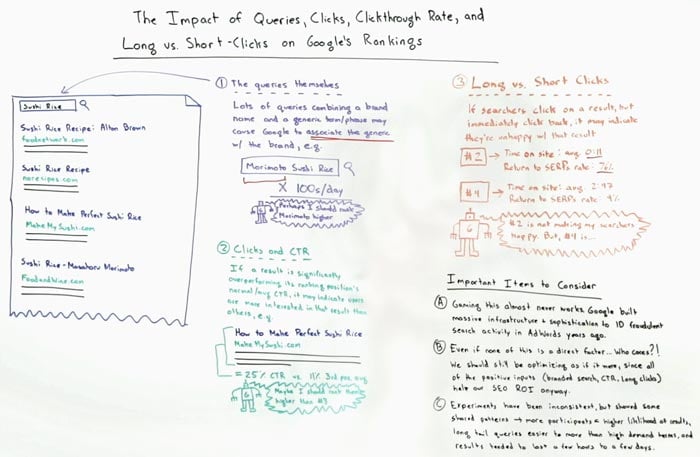 The Impact of Queries, Clicks, Clickthrough Rate, and
Long vs. Short-Clicks on Google's Rankings
Sushi Rice
Sushi Rice Recipe: Alton Brown
foodnetwork.com
Sushi Rice Recipe
norecipes.com
How to Make Perfect Sushi Rice
MakeMySushi.com
Sushi Rice - Masaharu Morimoto
FoodandWine.com
① The queries themselves
Lots of queries combining a brand
name and a generic term/phrase may
cause Google to associate the generic
w/ the brand, e.g.
Morimoto Sushi Rice
X 100s/day
G
Perhaps I should rank
Morimoto higher
② Clicks and CTR
If a result is significantly
overperforming its ranking position's
normal/avg CTR, it may indicate users
are more interested in that result than
others, e.g.
How to Make Perfect Sushi Rice
MakeMySushi.com
= 25% CTR vs. 11% 3rd pos. avg
G
Maybe I should rank them
higher than #3
③ Long vs. Short Clicks
If searchers click on a result, but
immediately click back, it may indicate
they're unhappy w/ that result
#2 → Time on site: avg. 0:11
Return to SERPs rate:
#4 → Time on site: avg. 2:47
Return to SERPs rate: 9%
G
#2 is not making my searchers
happy. But, #4 is...
Important Items to Consider
Ⓐ Gaming this almost never works. Google built
massive infrastructure + sophistication to ID fraudulent
search activity in AdWords years ago.
Ⓑ Even if none of this is a direct factor... Who cares?!
We should still be optimizing as if it were, since all
of the positive inputs (branded search, CTR, long clicks)
help our SEO ROI anyway.
Ⓒ Experiments have been inconsistent, but showed some
shared patterns → more participants = higher liklihood of results,
long tail queries easier to move than high demand terms, and
results tended to last a few hours to a few days.